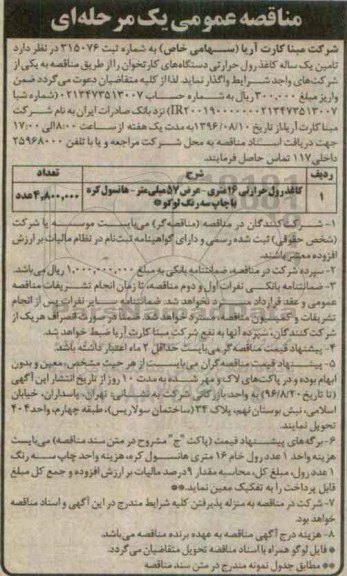 مناقصه عمومی یک مرحله‌ای
شرکت مبنا کارت آریا (ســهامی خاص) به شماره ثبت ۳۱۵۰۷۶ در نظر دارد
تامین یک ساله کاغذ رول حرارتی دستگاه‌های کارتخوان را از طریق مناقصه به یکی از
شرکت‌های واجد شــرایط واگذار نماید. لذا از کلیه متقاضیان دعوت می‌گردد ضمن
واریز مبلغ ۳۰۰,۰۰۰ ریال به شــماره حســاب ۰۲۱۳۴۷۳۵۱۳۰۰۷ (شماره شبا
نزد بانک صادرات ایران به نام شــرکت
مبنا کارت آریا، از تاریخ ۱۳۹۶/۰۸/۱۰ به مدت یک هفته از ســاعت ۸:۰۰ الی ۱۷:۰۰
جهت دریافت اســناد مناقصه به محل شــرکت مراجعه و یا با تلفن ۲۵۹۶۸۰۰۰
داخلی ۱۱۷ تماس حاصل فرمایند.
ردیف شرح تعداد
۱ کاغذ رول حرارتی ۱۶ متری - عرض ۵۷ میلی‌متر - هانسول کره ۴,۸۰۰,۰۰۰ عدد
با چاپ سه رنگ لوگو *
۱- شــرکت‌کنندگان در مناقصه (مناقصه‌گر) می‌بایســت موسســه یا شرکت
(شخص حقوقی) ثبت شده رسمی و دارای گواهینامه ثبت‌نام در نظام مالیات بر ارزش
افزوده معتبر باشند.
۲- سپرده شرکت در مناقصه، ضمانتنامه بانکی به مبلغ ۱,۰۰۰,۰۰۰,۰۰۰ ریال می‌باشد.
۳- ضمانتنامه بانکــی نفرات اول و دوم مناقصه، تا زمان انجام تشــریفات مناقصه
عمومی و عقد قرارداد مســترد نخواهد شد. ضمانتنامه ســایر نفرات پس از انجام
تشریفات و کمیسیون مناقصه، مسترد خواهد شد. ضمناً در صورت انصراف هر یک از
شرکت کنندگان، سپرده آنها به نفع شرکت مبنا کارت آریا ضبط خواهد شد.
۴- پیشنهاد قیمت مناقصه‌گر می‌بایست حداقل ۲ ماه اعتبار داشته باشد.
۵- پیشــنهاد قیمت مناقصه‌گران می‌بایســت از هر حیث مشخص، معین و بدون
ابهام بوده و در پاکت‌های لاک و مهر شــده به مدت ۱۰ روز از تاریخ انتشار این آگهی
(تا تاریخ ۹۶/۸/۲۰) به واحد بازرگانی شرکت به نشــانی: تهران، پاسداران، خیابان
اسلامی، نبش بوستان نهم، پلاک ۳۴ (ساختمان سولاریس)، طبقه چهارم، واحد ۴۰۴
تحویل نمایند.
۶- برگه‌های پیشــنهاد قیمت (پاکت "ج" مشروح در متن سند مناقصه) می‌بایست
هزینه واحد ۱ عدد رول خام ۱۶ متری هانســول کره، هزینه واحد چاپ سه رنگ
۱ عدد رول، مبلغ کل، محاسبه مقدار ۹ درصد مالیات بر ارزش افزوده و جمع کل مبلغ
قابل پرداخت را به تفکیک معین نماید. **
۷- شرکت در مناقصه به منزله پذیرفتن کلیه شرایط مندرج در این آگهی و اسناد مناقصه
خواهد بود.
۸- هزینه درج آگهی مناقصه به عهده برنده مناقصه می‌باشد.
* فایل لوگو همراه با اسناد مناقصه تحویل متقاضیان می‌گردد.
** مطابق جدول نمونه مندرج در متن سند مناقصه